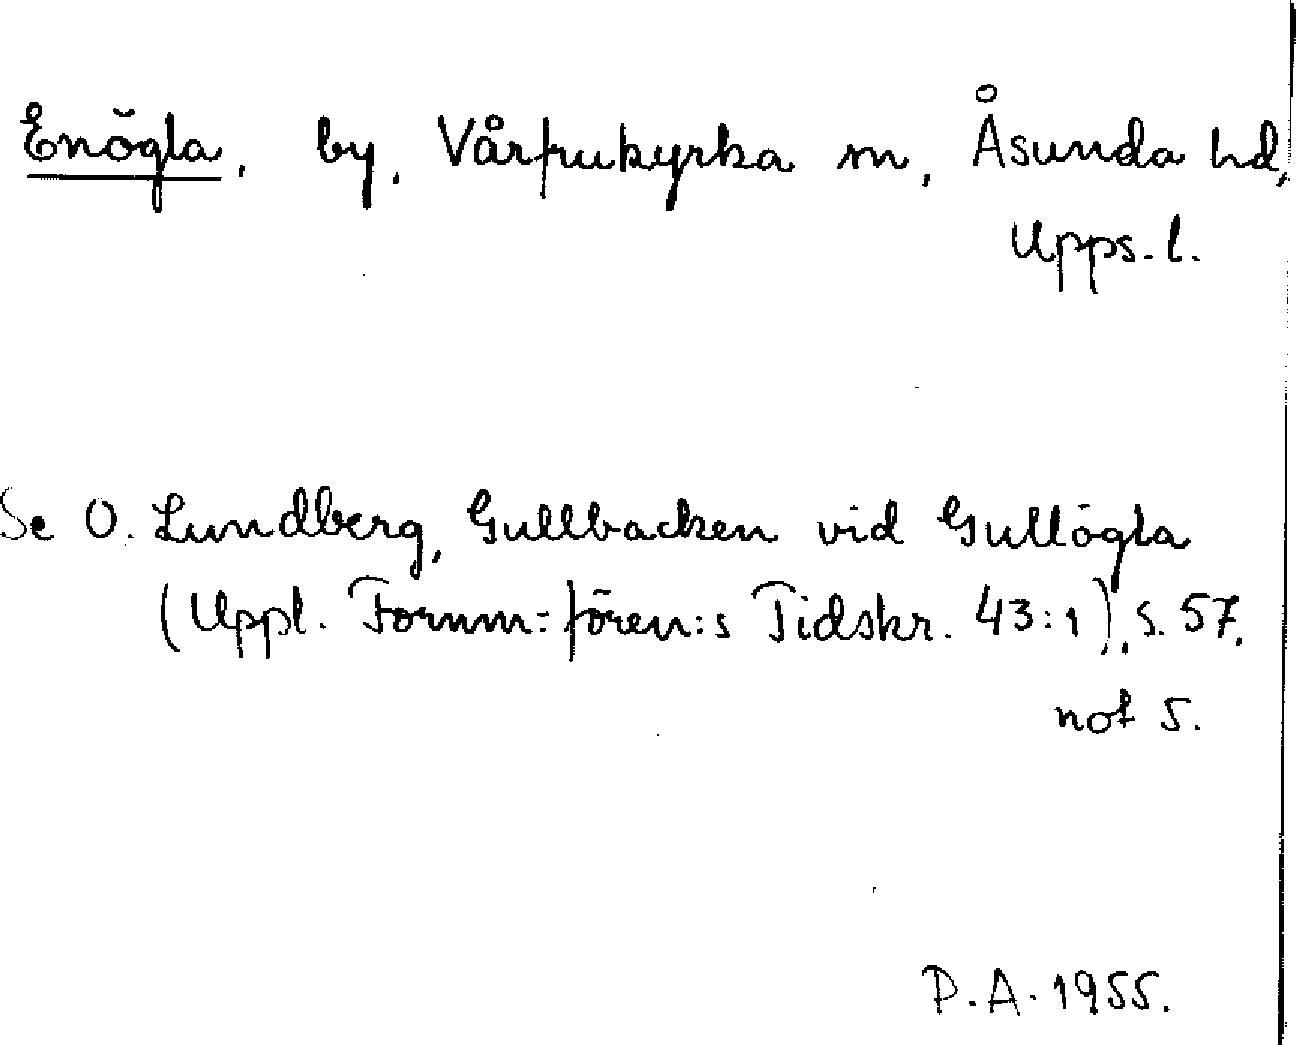 Enögla, by, Vårfrukyrka sn, Åsunda hd,
Upps. l.
Se O. Lundberg, Gullbacken vid Gullögla
(Uppl. Fornm.-fören:s Tidskr. 43:1), s. 57.
not 5.
P.A. 1955.